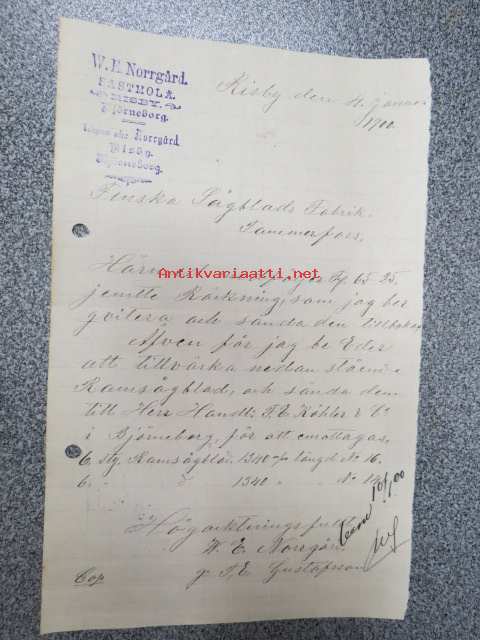 W. E. Norrgård.
KASTHOLA.
RISBY.
Björneborg.
Norrgård
Risby.
Björneborg.
Risby den 4. Januari
1900.
Finska Sågblads Fabrik.
Tammerfors.
Härmed 65.25.
jemtte Räckning, som jag ber
qvitera och sända den tillbaka
Även får jag be Eder
att tillvärka nedan ståend
Ramsågblad, och sända dem
till Herr Handl: F. E. Köhler & C:o
i Björneborg, för att emottagas,
6. sty. Ramsågblad. 1340 m/m längd No 16.
6. " d 1340 " " No 14
101/00
Högacktningsfullt
W. E. Norrgård.
g. F. E. Gustafsson
Cop
Antikvariaatti.net